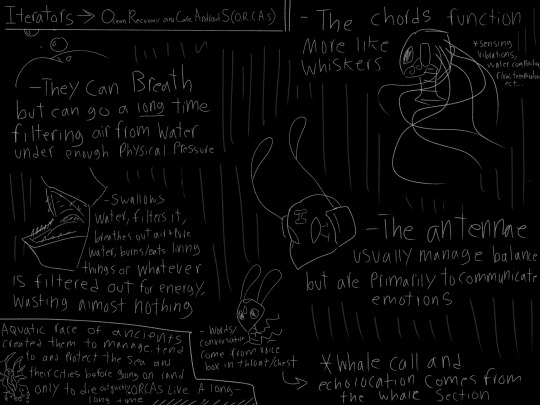 Iterators → Ocean Recovery and Care Android S(O.R.C.A.s)
-They Can Breath
but can go a long time
filtering air from water
under enough Physical Pressure
-Swallows
water, filters it,
breathes out air + Pure
water, burns/eats living
things or whatever
is filtered out for energy,
wasting almost nothing
Aquatic race of ancients
created them to manage, tend
to and Protect the Sea and
their cities before going on land
only to die out quickly ORCAs Live A long-
long time
-The chords function
more like
whiskers
*sensing
vibrations,
water
flow, temperature
ect...
-The antennae
usually manage balance
but are primarily to communicate
emotions
-Words/
conversation
come from voice
box in throat/chest
*Whale call and
echolocation comes from
the whale Section